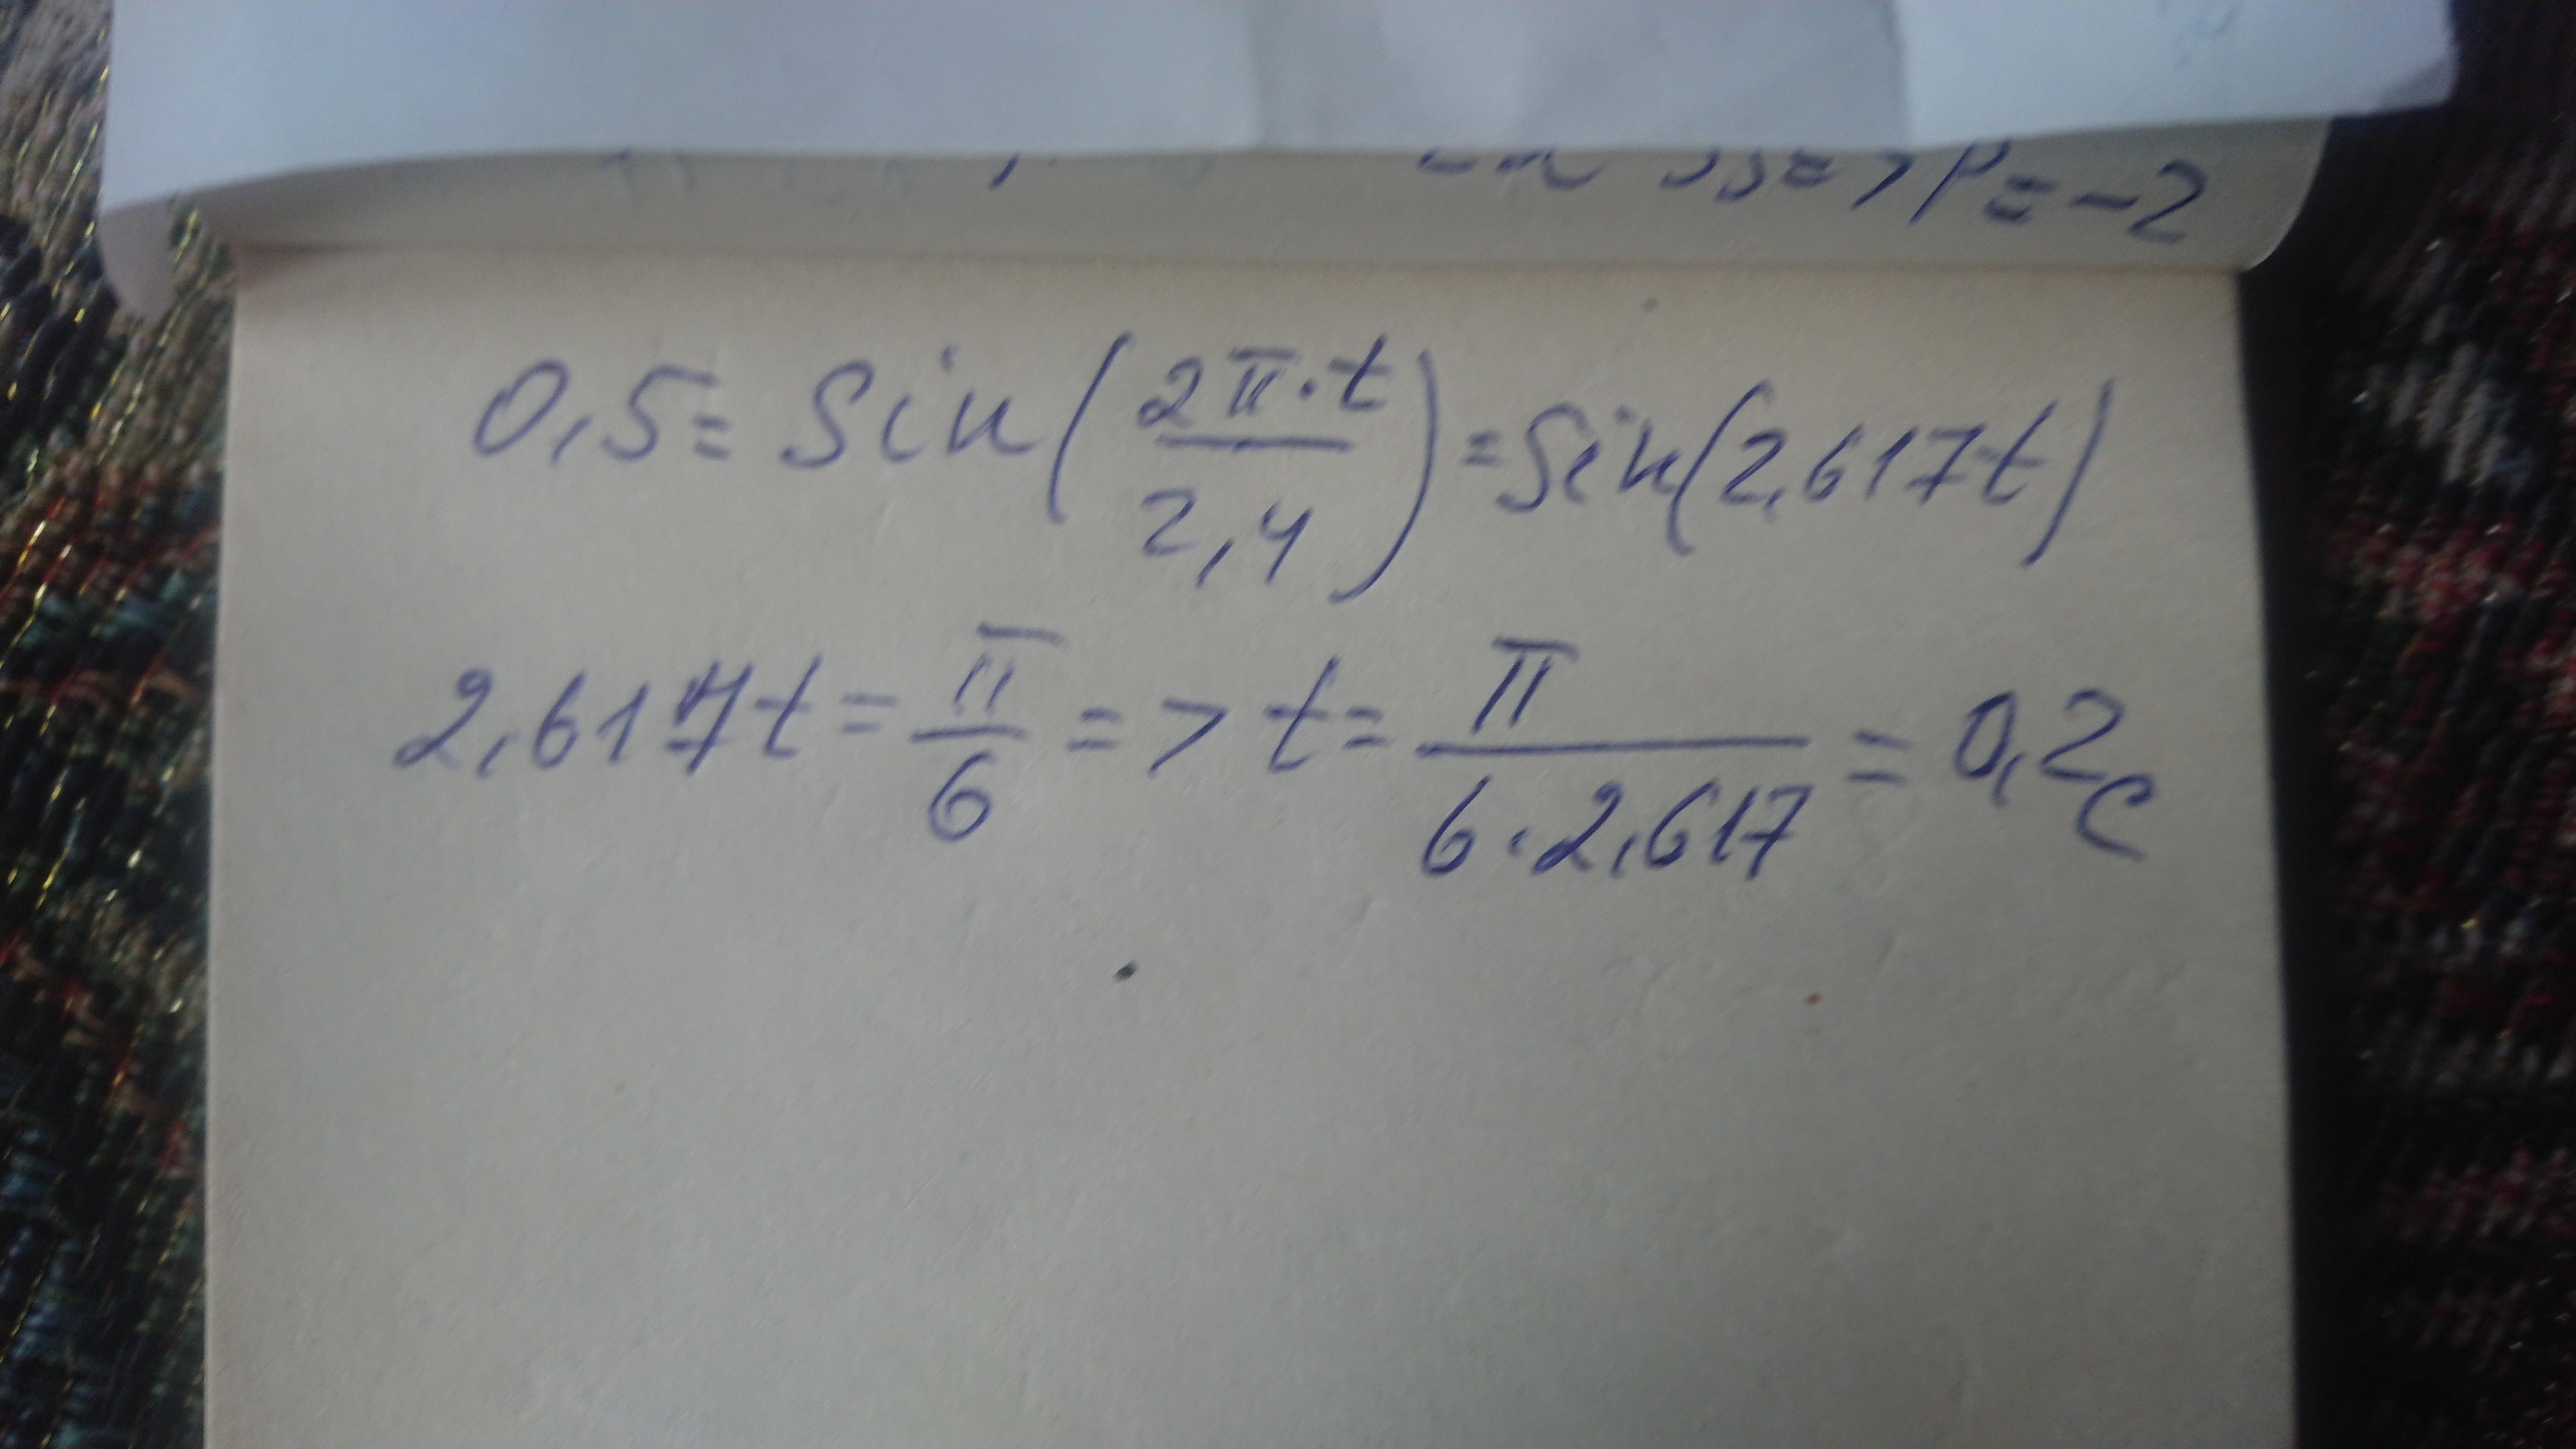 => P = -2
0,5 = Sin(2π·t / 2,4) = Sin(2,617t)
2,617t = π/6 => t = π / 6·2,617 = 0,2c